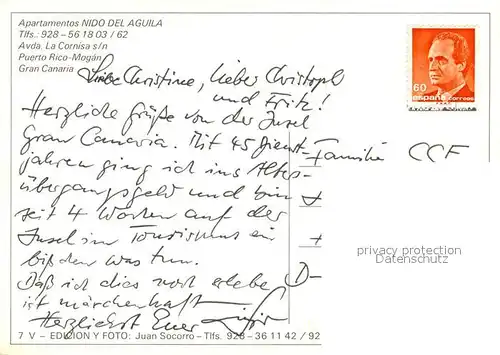 Apartamentos NIDO DEL AGUILA
Tlfs.: 928 – 56 18 03 / 62
Avda. La Cornisa s/n
Puerto Rico-Mogán
Gran Canaria
60
españa correos
Liebe Christine, lieber Christoph
und Fritz!
Herzliche Grüße von der Insel
Gran Canaria. Mit 45 Dienst-
jahren ging ich ins Alters-
übergangsgeld und bin
seit 4 Wochen auf der
Insel im Tourismus ein
bißchen was tun.
Daß ich dies noch erlebe
ist märchenhaft
Herzlichst Euer
Familie CCF
D-
privacy protection
Datenschutz
7 V – EDICION Y FOTO: Juan Socorro – Tlfs. 928-36 11 42 / 92